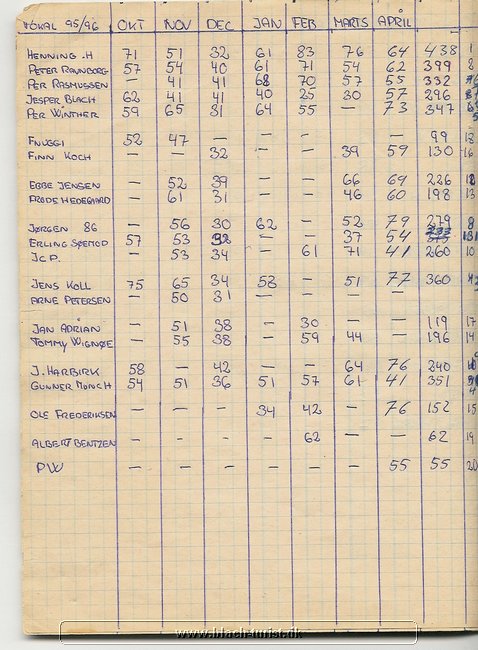 LOKAL 95/96 OKT NOV DEC JAN FEB MARTS APRIL
HENNING .H 71 51 32 61 83 76 64 438 1
PETER RAVNBORG 57 54 40 61 71 54 62 399
PER RASMUSSEN — 41 41 68 70 57 55 332
JESPER BLACH 62 41 41 40 25 30 57 296
PER WINTHER 59 65 31 64 55 — 73 347
FNUGGI 52 47 — — — — 99 18
FINN KOCH — — 32 — — 39 59 130 16
EBBE JENSEN — 52 39 — — 66 69 226
FRODE HEDEGAARD — 61 31 — — 46 60 198 13
JØRGEN 86 — 56 30 62 — 52 79 279 8
ERLING SØEMOD 57 53 32 — — 37 54 233
JCP. — 53 34 — 61 71 41 260 10
JENS KOLL 75 65 34 58 — 51 77 360
ARNE PETERSEN — 50 31 — — — —
JAN ADRIAN — 51 38 — 30 — — 119 17
TOMMY WIGNØE — 55 38 — 59 44 — 196 14
J. HARBIRK 58 — 42 — — 64 76 240
GUNNER MÜNCH 54 51 36 51 57 61 41 351
OLE FREDERIKSEN — — — 34 42 — 76 152 15
ALBERT BENTZEN - - - - 62 — — 62 19
PW — — — — — — 55 55 20
www.blach-turist.dk